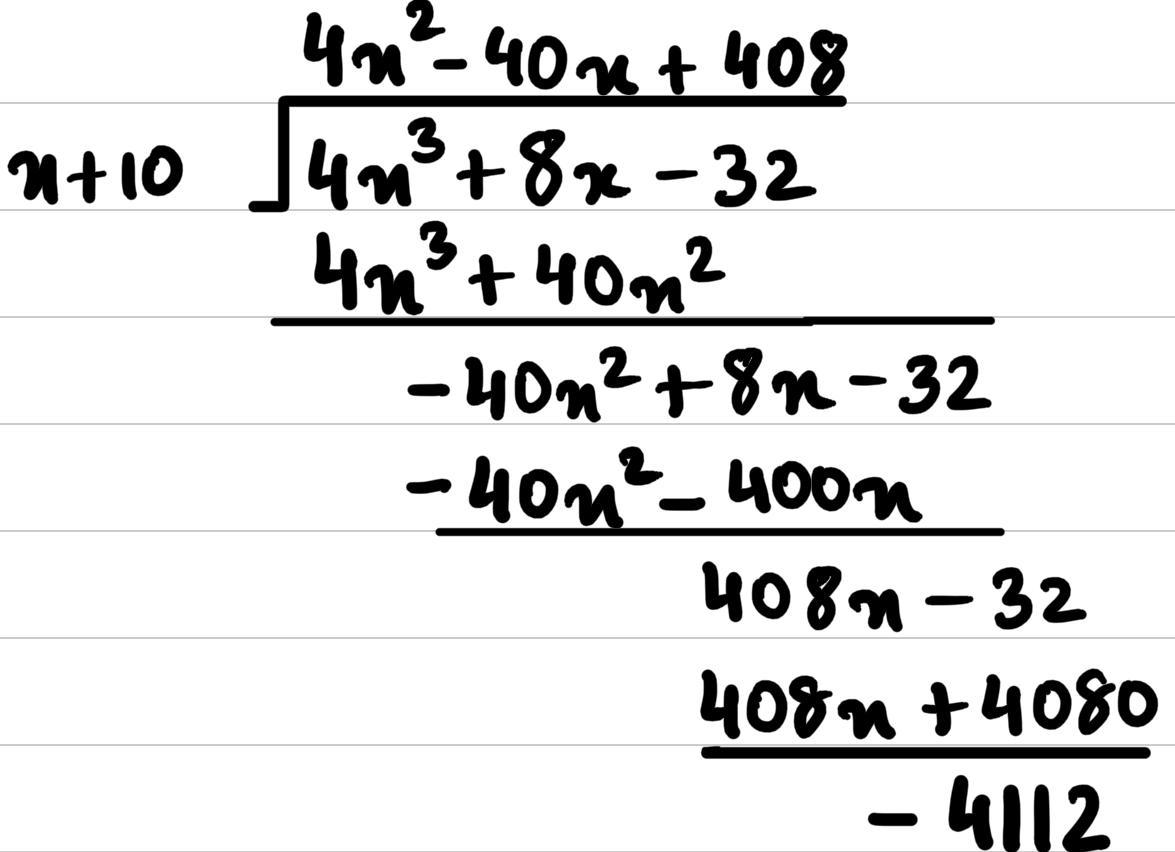 4x² - 40x + 408
x + 10 4x³ + 8x - 32
4x³ + 40x²
- 40x² + 8x - 32
- 40x² - 400x
408x - 32
408x + 4080
- 4112